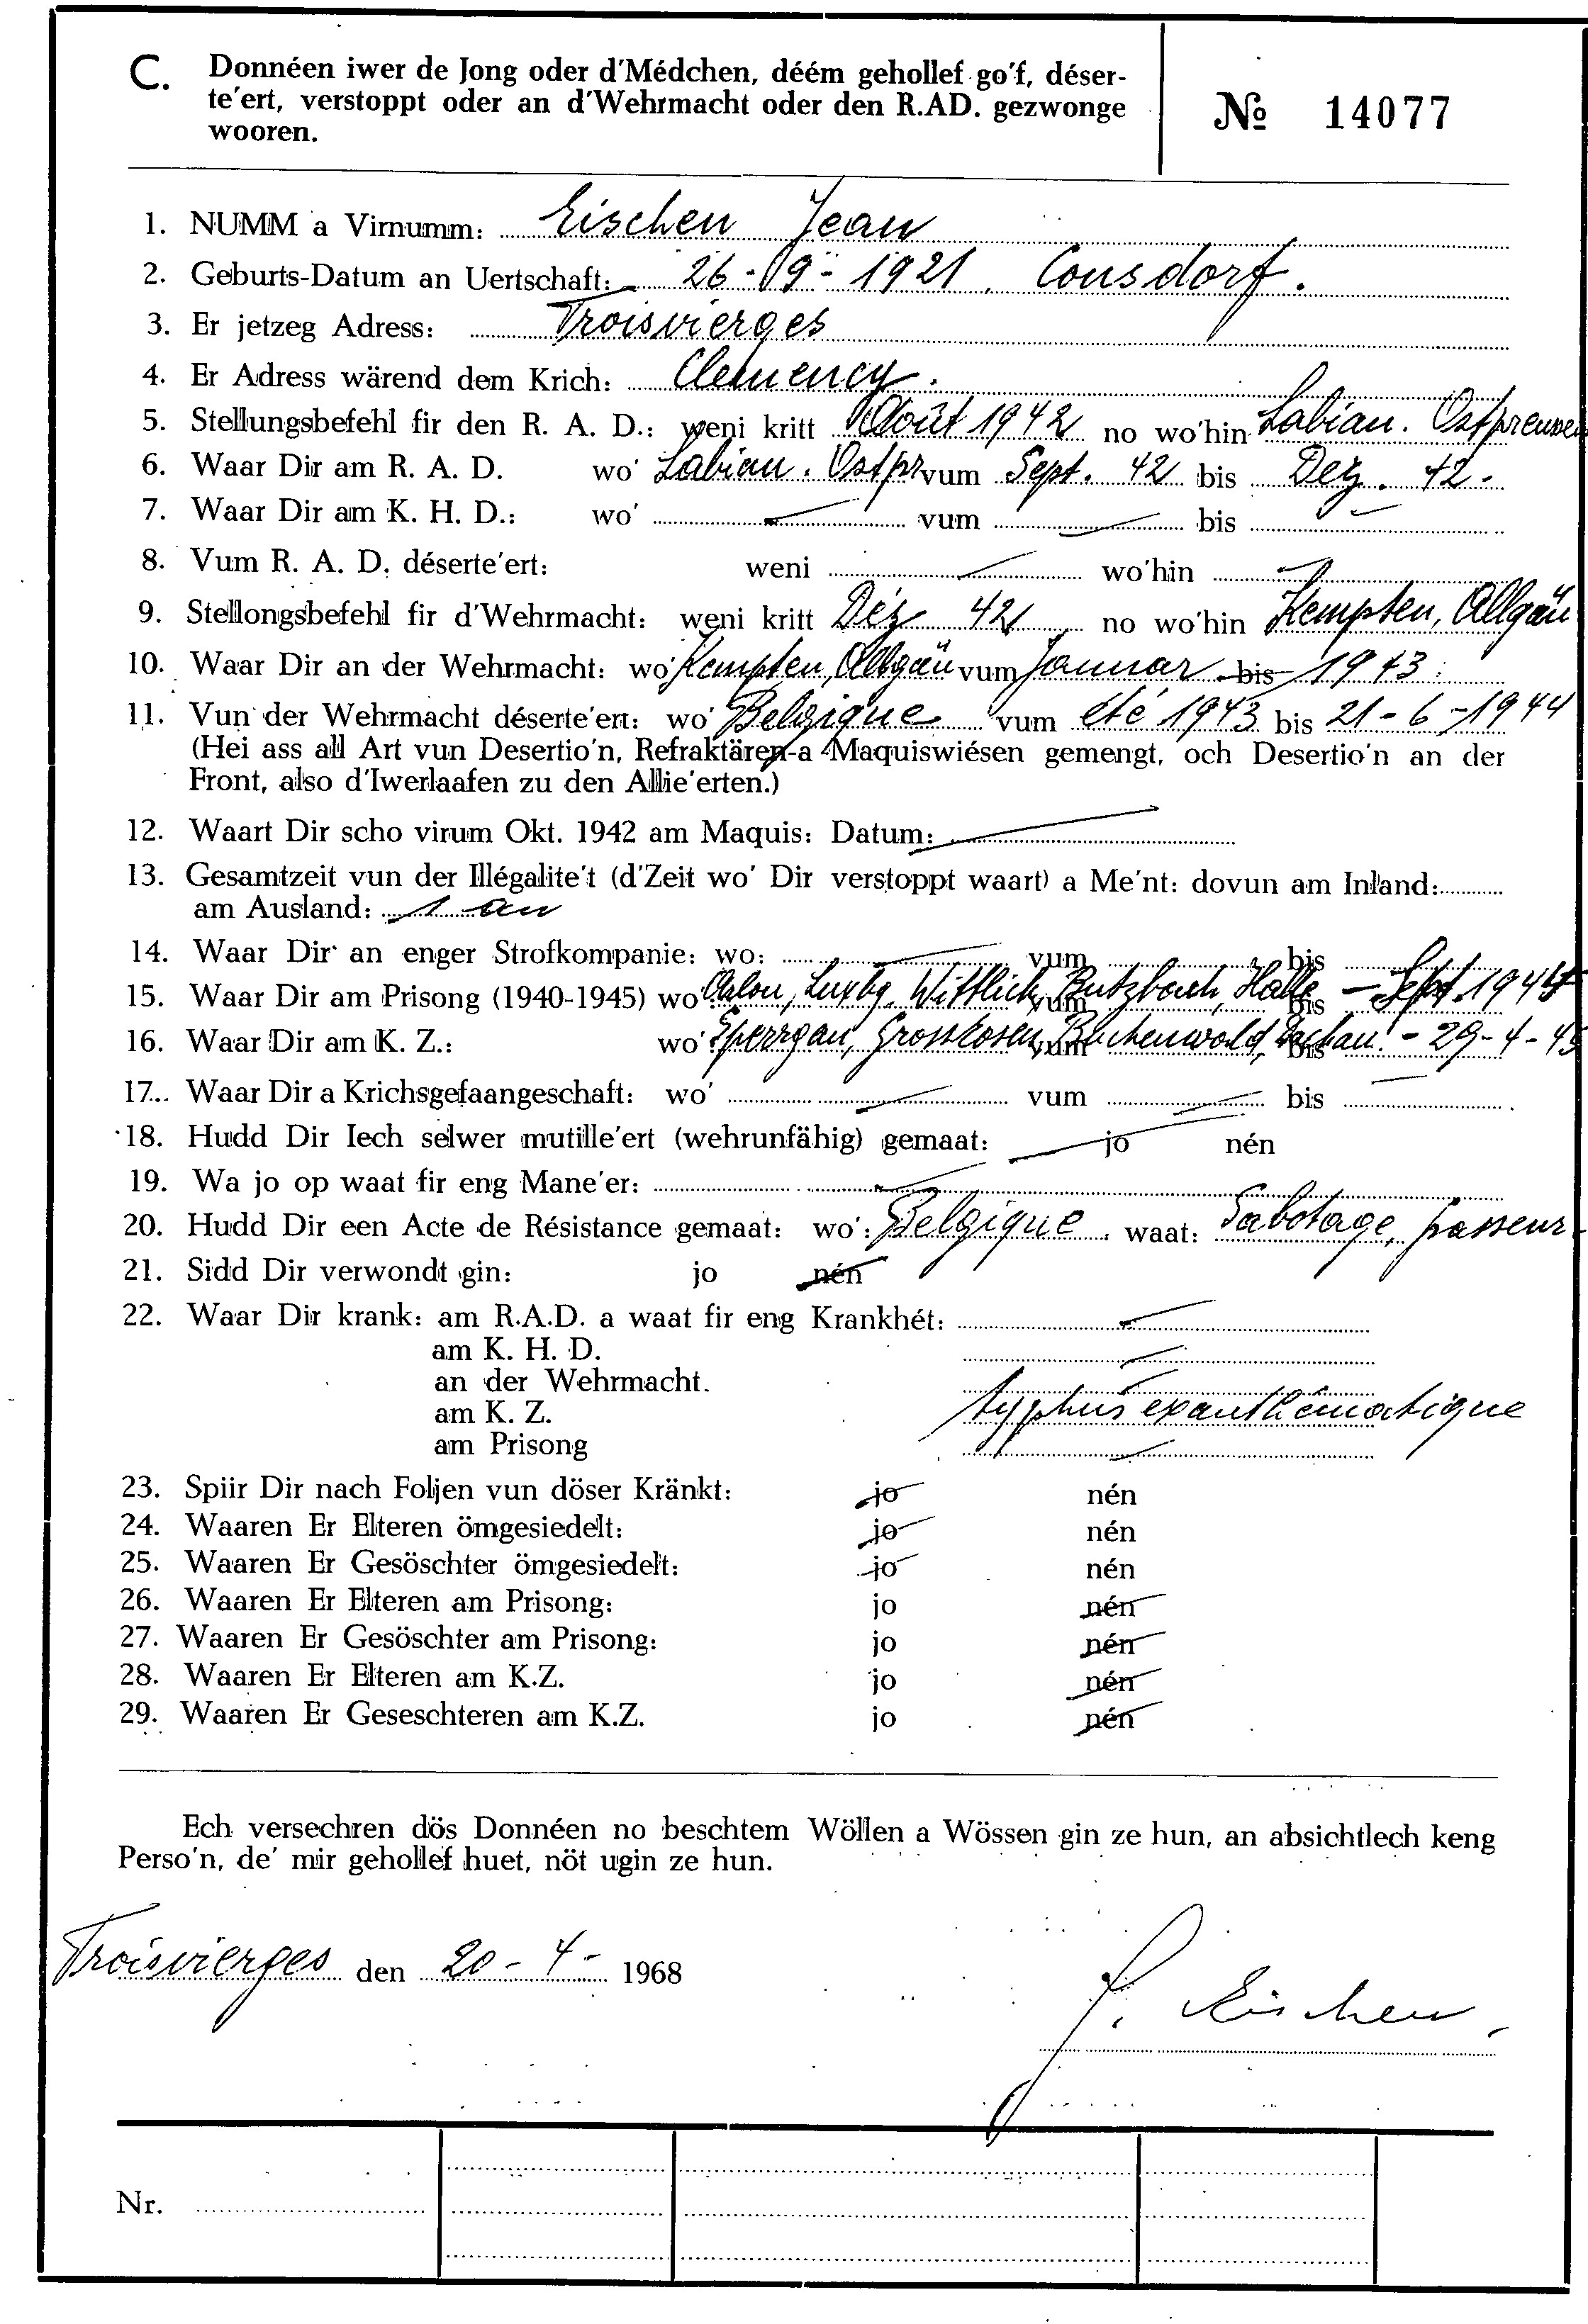 C. Donnéen iwer de Jong oder d'Médchen, déém gehollef go'f, déser-
te'ert, verstoppt oder an d'Wehrmacht oder den R.AD. gezwonge
wooren.
№ 14077
1. NUMM a Virnumm: Eischen Jean
2. Geburts-Datum an Uertschaft: 26-9-1921. Consdorf.
3. Er jetzeg Adress: Troisvierges
4. Er Adress wärend dem Krich: Clemency.
5. Stellungsbefehl fir den R. A. D.: weni kritt Août 1942 no wo'hin Labiau. Ostpreussen
6. Waar Dir am R. A. D. wo' Labiau. Ostpr vum Sept. 42 bis Dez. 42.
7. Waar Dir am K. H. D.: wo' vum bis
8. Vum R. A. D. déserte'ert: weni wo'hin
9. Stellongsbefehl fir d'Wehrmacht: weni kritt Déz 42 no wo'hin Kempten, Allgäu
10. Waar Dir an der Wehrmacht: wo' Kempten, Allgäu vum Januar bis 1943
11. Vun der Wehrmacht déserte'ert: wo' Belgique vum été 1943 bis 21-6-1944
(Hei ass all Art vun Desertio'n, Refraktären-a Maquiswiésen gemengt, och Desertio'n an der
Front, also d'Iwerlaafen zu den Allie'erten.)
12. Waart Dir scho virum Okt. 1942 am Maquis: Datum:
13. Gesamtzeit vun der Illégalite't (d'Zeit wo' Dir verstoppt waart) a Me'nt: dovun am Inland:
am Ausland: 1 an
14. Waar Dir an enger Strofkompanie: wo: vum bis
15. Waar Dir am Prisong (1940-1945) wo' Arlon, Luxbg, Wittlich, vum Butzbach, Halle bis - Sept. 1944
16. Waar Dir am K. Z.: wo' Spergau, vum Buchenwald, Dachau bis - 29-4-45
17. Waar Dir a Krichsgefaangeschaft: wo' vum bis
18. Hudd Dir Iech selwer mutille'ert (wehrunfähig) gemaat: jo nén
19. Wa jo op waat fir eng Mane'er:
20. Hudd Dir een Acte de Résistance gemaat: wo': Belgique. waat: Sabotage, passeur
21. Sidd Dir verwondt gin: jo nén
22. Waar Dir krank: am R.A.D. a waat fir eng Krankhét:
am K. H. D.
an der Wehrmacht.
am K. Z. typhus exanthématique
am Prisong
23. Spiir Dir nach Foljen vun döser Kränkt: jo nén
24. Waaren Er Elteren ömgesiedelt: jo nén
25. Waaren Er Gesöschter ömgesiedelt: jo nén
26. Waaren Er Elteren am Prisong: jo nén
27. Waaren Er Gesöschter am Prisong: jo nén
28. Waaren Er Elteren am K.Z. jo nén
29. Waaren Er Geseschteren am K.Z. jo nén
Ech versechren dös Donnéen no beschtem Wöllen a Wössen gin ze hun, an absichtlech keng
Perso'n, de' mir gehollef huet, nöt ugin ze hun.
Troisvierges den 20-4- 1968
J. Eischen.
Nr.